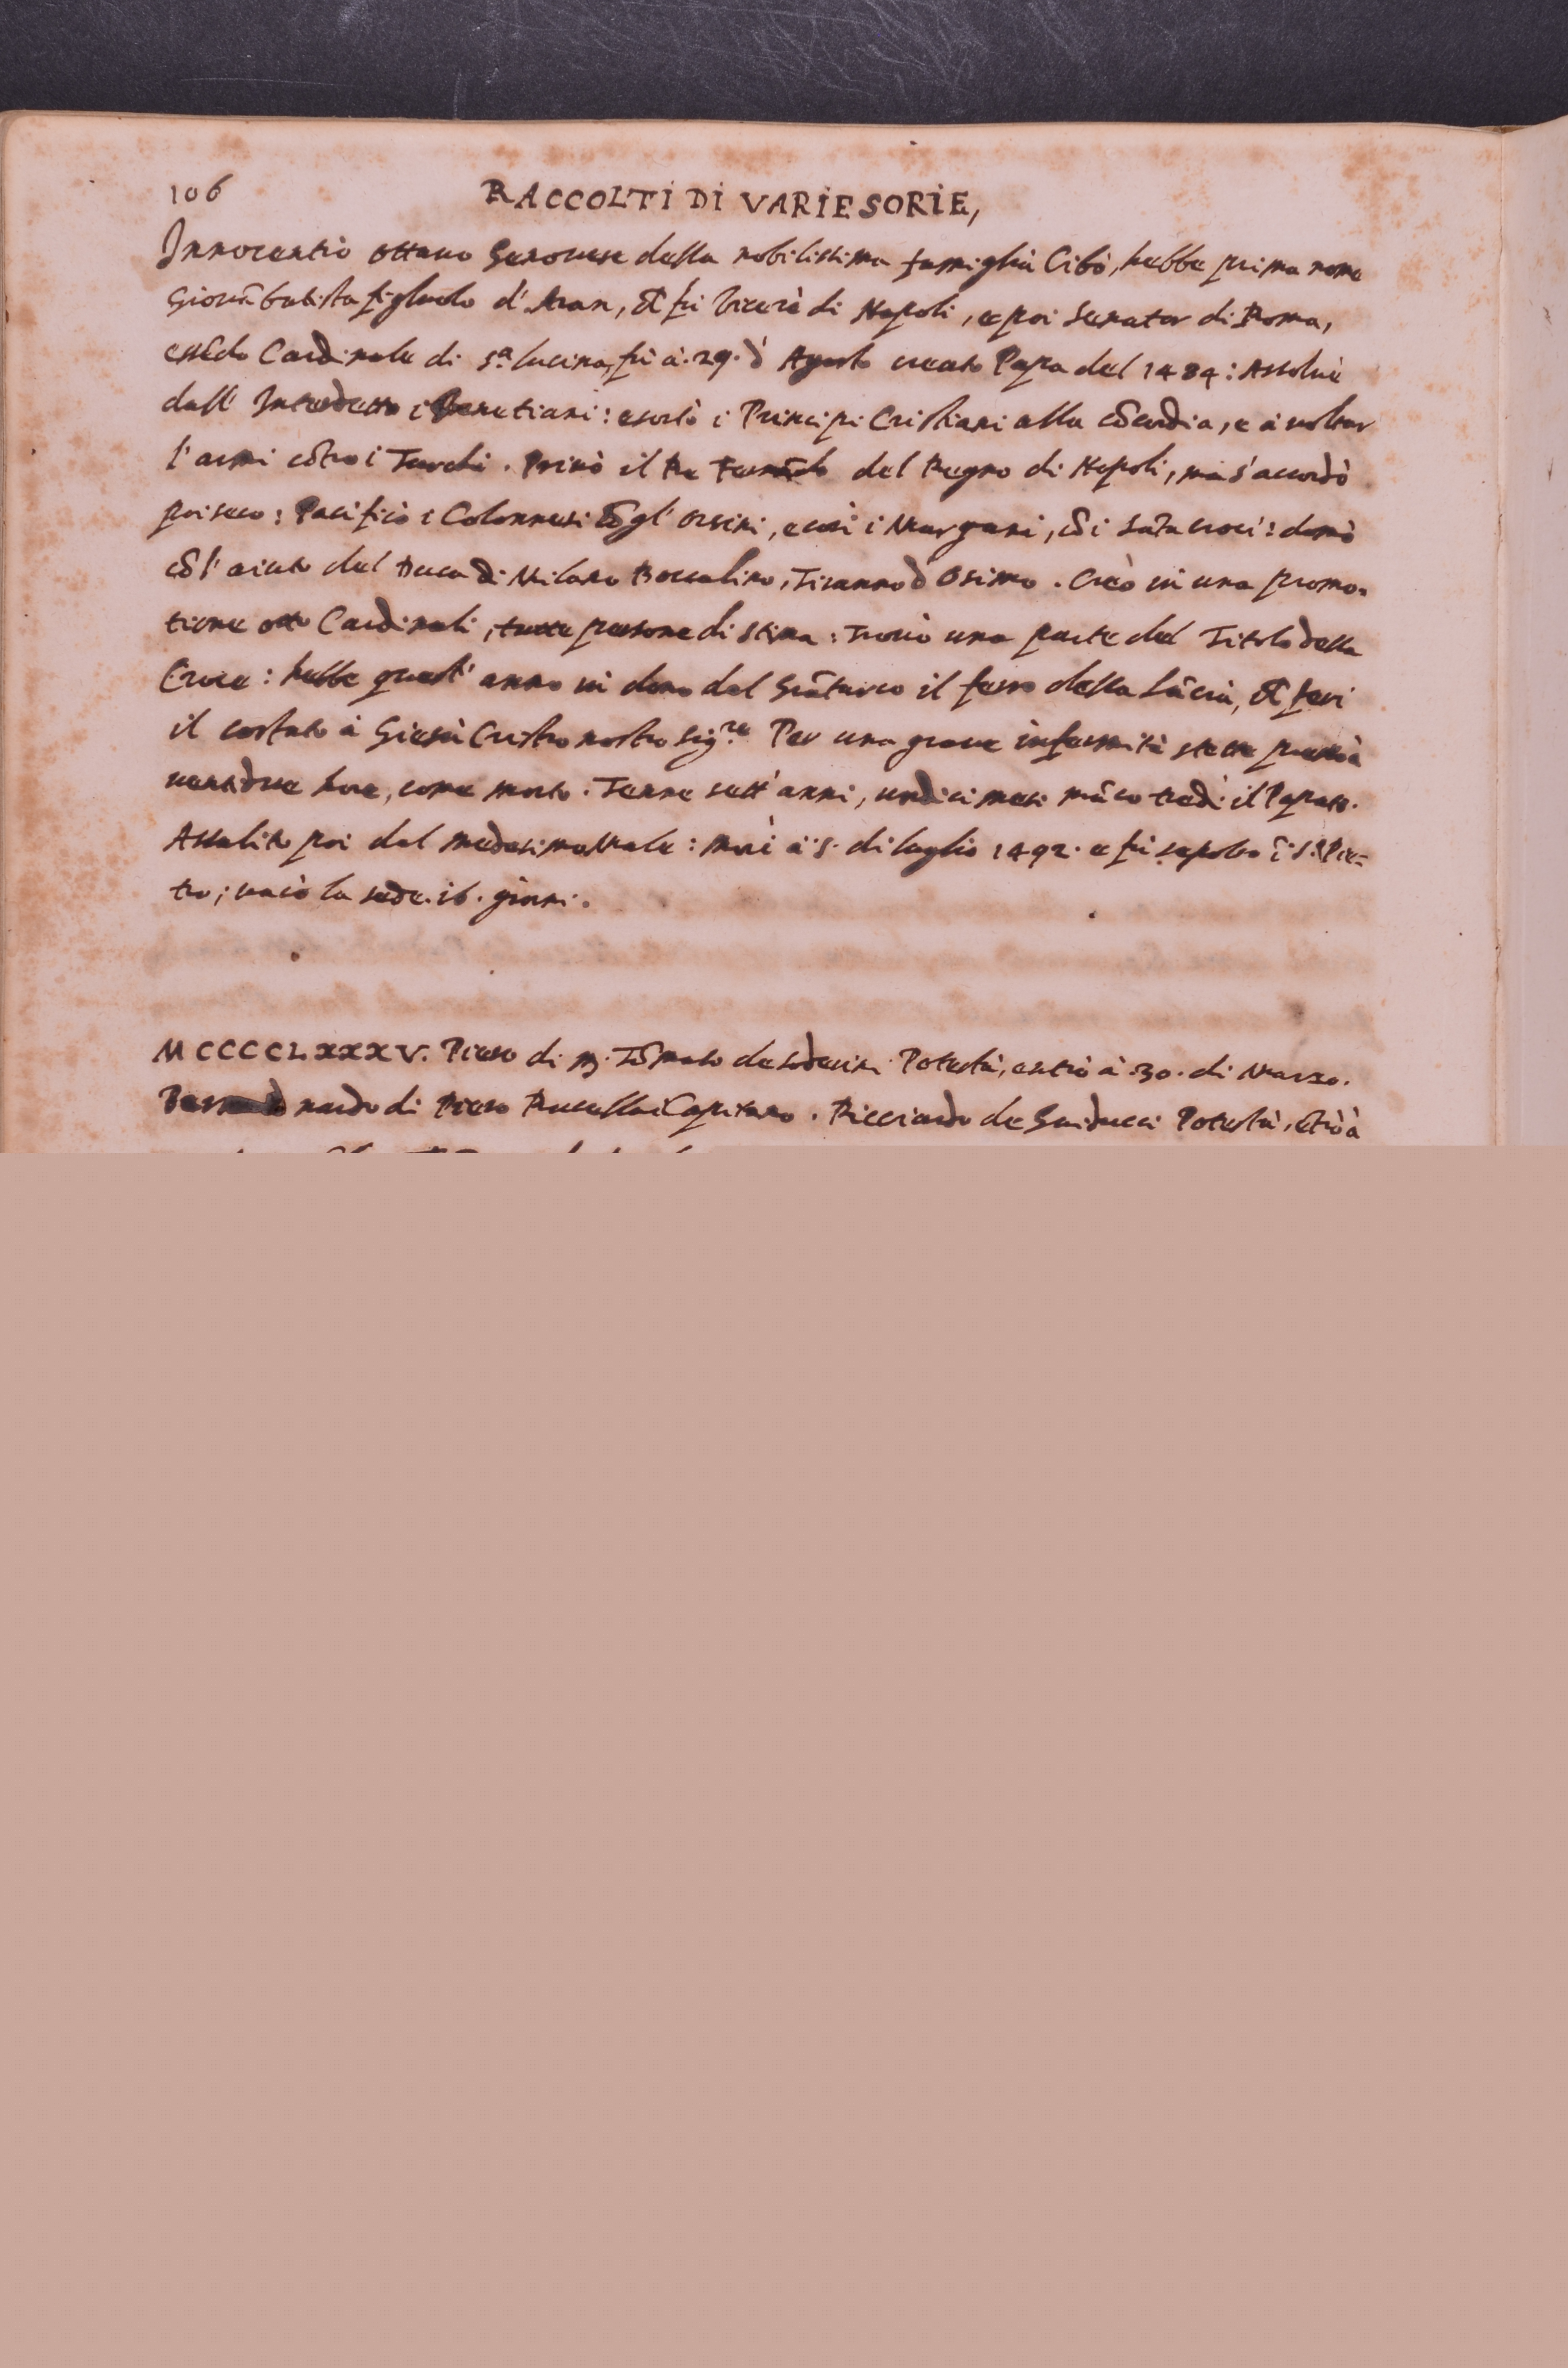 106
RACCOLTI DI VARIE SORIE,
Innocentio ottauo Genouese della nobilissima famiglia Cibò, hebbe prima nome
Giouābatista figluolo d'Aran, chē fù Vicerè di Napoli, e poi Senator di Roma,
essēdo Cardinale di S.ª lucina, fù à .29. d Agosto creato Papa del 1484: Assoluè
dall' Interdetto i Venetiani: esortò i Principi Cristiani alla cōcordia, e à uoltar
l'armi cōtro i Turchi. Priuò il Re Ferrādo del Regno di Napoli, ma s'accordò
poi seco: Pacificò i Colonnesi cō gl' Orsini, e così i Margani, cō i Sāta croci: domò
cō l' aiuto del Duca di Milano Boccalino, Tiranno d Osimo. Creò in una promo-
tione otto Cardinali, tutte persone di stima: Trouò una parte del Titolo della
Croce: hebbe quest' anno in dono dal Grāturco il ferro della Lācia, chē ferì
il costato à Giesù Cristro nostro Sig.re Per una graue infermità stette presso à
uentidue hore, come morto. Tenne sett' anni, undici mesi māco tre dì il Papato.
Assalito poi dal medesimo Male: morì à 5. di luglio 1492. e fù sepolto ī S. Pie-
tro; uacò la sede .16. giorni.
MCCCCLXXXV. Piero di M. Tōmaso de Soderini Potestà, entrò à .30. di Marzo.
nardo di Piero Rucellai Capitano. Ricciardo de Guiducci Potestà, ētrò à